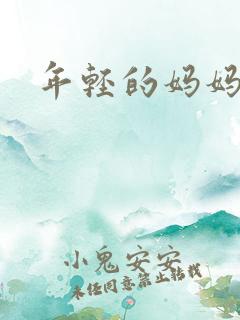 年轻的妈妈
小鬼安安
未经同意禁止转载